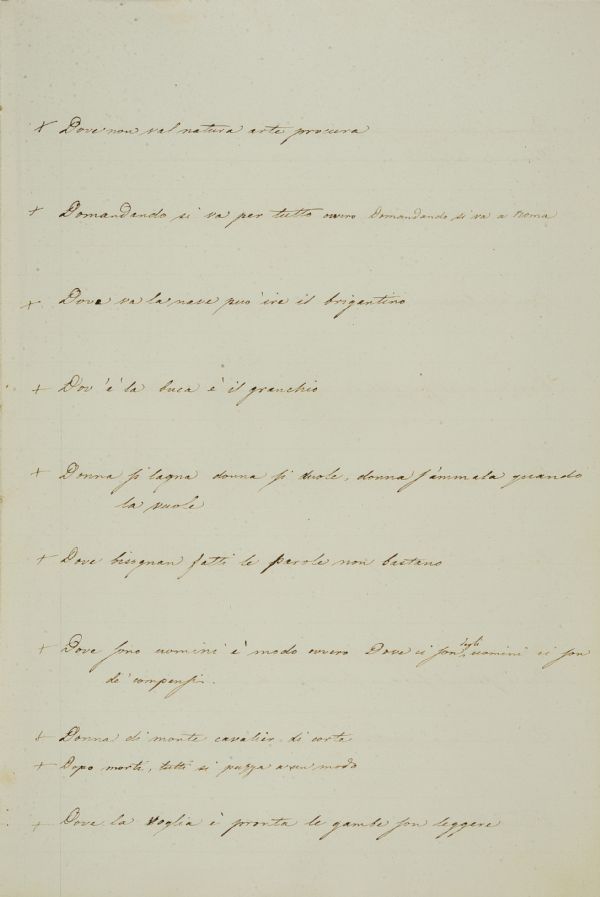 + Dove non val natura arte procura
+ Domandando si va per tutto ovvero Domandando si va a Roma
+ Dove va la nave può ire il brigantino
+ Dov'è la buca è il granchio
+ Donna si lagna donna si duole, donna s'ammala quando
la vuole
+ Dove bisognan fatti le parole non bastano
+ Dove sono uomini è modo ovvero Dove ci son degli uomini ci son
de' compensi.
+ Donna di monte cavalier di corte
+ Dopo morti, tutti si puzza a un modo
+ Dove la voglia è pronta le gambe son leggere